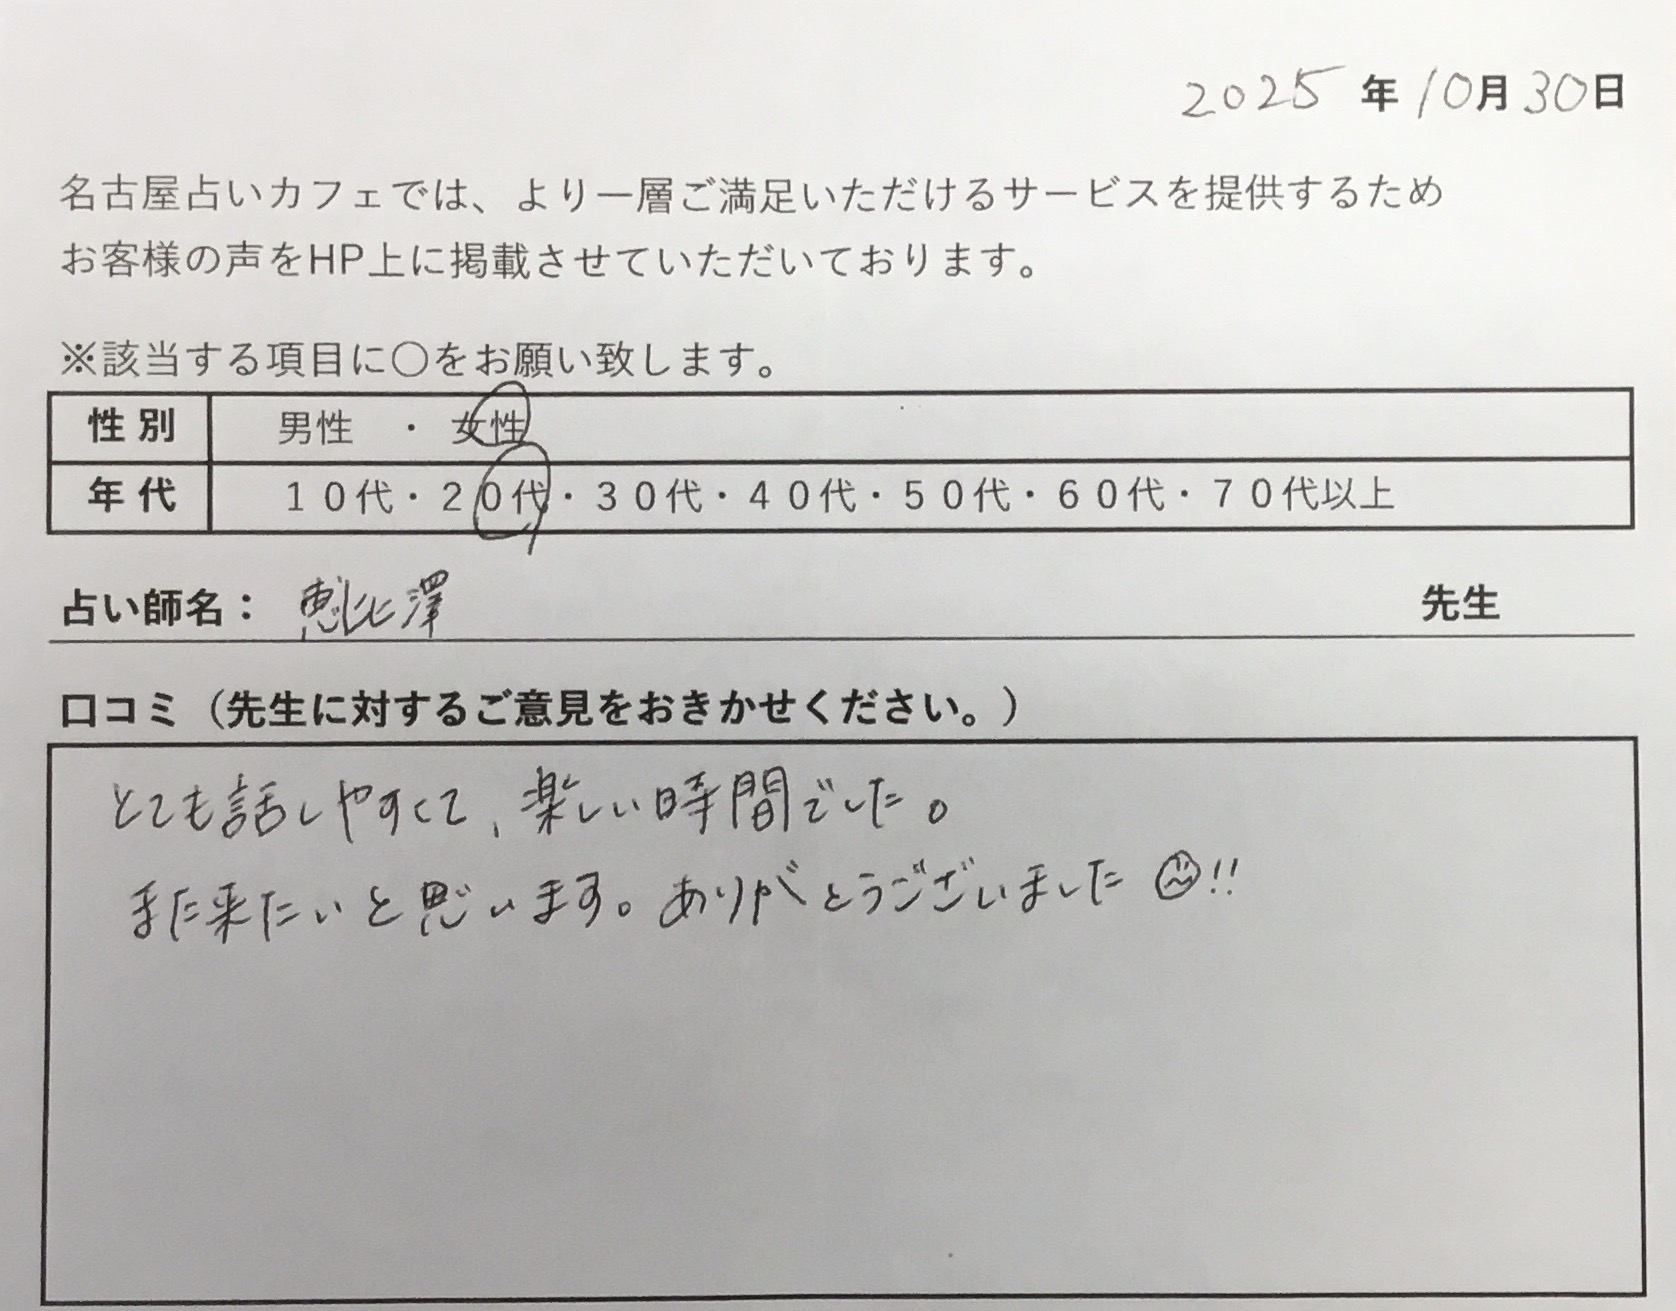 2025年10月30日
名古屋占いカフェでは、より一層ご満足いただけるサービスを提供するため
お客様の声をHP上に掲載させていただいております。
※該当する項目に〇をお願い致します。
性別 男性 ・ 女性
年代 10代・20代・30代・40代・50代・60代・70代以上
占い師名： 恵比澤 先生
口コミ（先生に対するご意見をおきかせください。）
とても話しやすくて、楽しい時間でした。
また来たいと思います。ありがとうございました☺!!